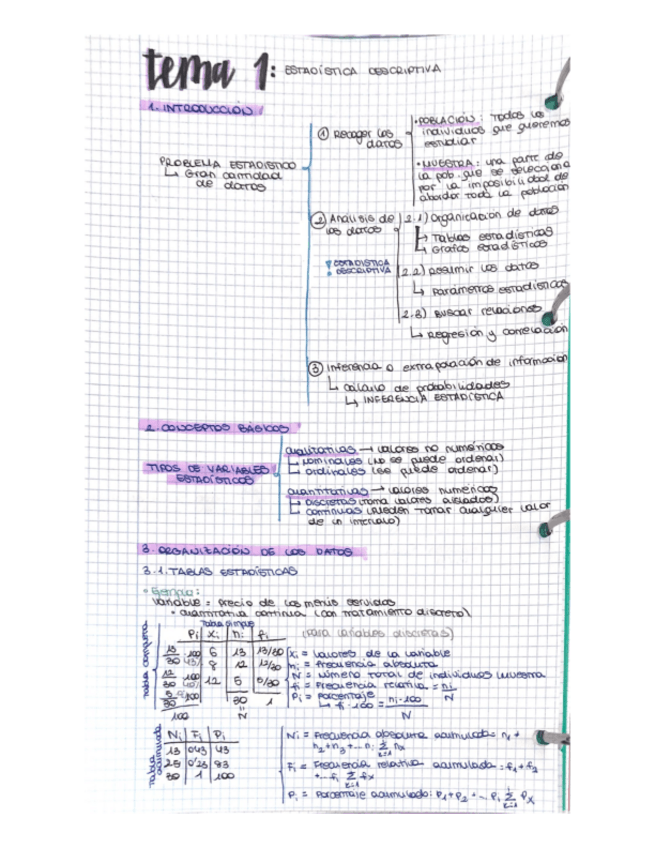 tema 1: ESTADÍSTICA DESCRIPTIVA
1. INTRODUCCIÓN
PROBLEMA ESTADÍSTICO
↳ Gran cantidad
de datos
① Recoger los
datos
• POBLACIÓN: Todos los
individuos que queremos
estudiar
• MUESTRA: una parte de
la pob. que se selecciona
por la imposibilidad de
abordar toda la población
② Análisis de
los datos
! ESTADÍSTICA
DESCRIPTIVA
2.1) Organización de datos
↳ Tablas estadísticas
↳ Grafos estadísticos
2.2) Resumir los datos
↳ Parámetros estadísticos
2.3) Buscar relaciones
↳ Regresión y correlación
③ Inferencia o extrapolación de información
↳ cálculo de probabilidades
↳ INFERENCIA ESTADÍSTICA
2. CONCEPTOS BÁSICOS
TIPOS DE VARIABLES
ESTADÍSTICOS
cualitativas → valores no numéricos
↳ nominales (no se puede ordenar)
↳ ordinales (se puede ordenar)
cuantitativas → valores numéricos
↳ discretas (toma valores aislados)
↳ continuas (pueden tomar cualquier valor
de un intervalo)
3. ORGANIZACIÓN DE LOS DATOS
3.1. TABLAS ESTADÍSTICAS
• Ejemplo:
variable = precio de los menús servidos
• cuantitativa continua (con tratamiento discreto)
Tabla simple
(para variables discretas)
Tabla conjunta
Pi | xi | ni | fi
13/30 · 100 | 6 | 13 | 13/30
12/30 · 100 | 8 | 12 | 12/30
5/30 · 100 | 12 | 5 | 5/30
100 | 30 | 1
= N
xi = valores de la variable
ni = frecuencia absoluta
N = número total de individuos muestra
fi = Frecuencia relativa = ni/N
Pi = Porcentaje
↳ fi · 100 = ni · 100/N
Tabla acumulada
Ni | Fi | Pi
13 | 0'43 | 43
25 | | 83
30 | 1 | 100
Ni = Frecuencia absoluta acumulada = n1 +
n2 + n3 + ... ni
Fi = Frecuencia relativa acumulada: f1 + f2
+ ... fi
Pi = Porcentaje acumulado: P1 + P2 + ... Pi